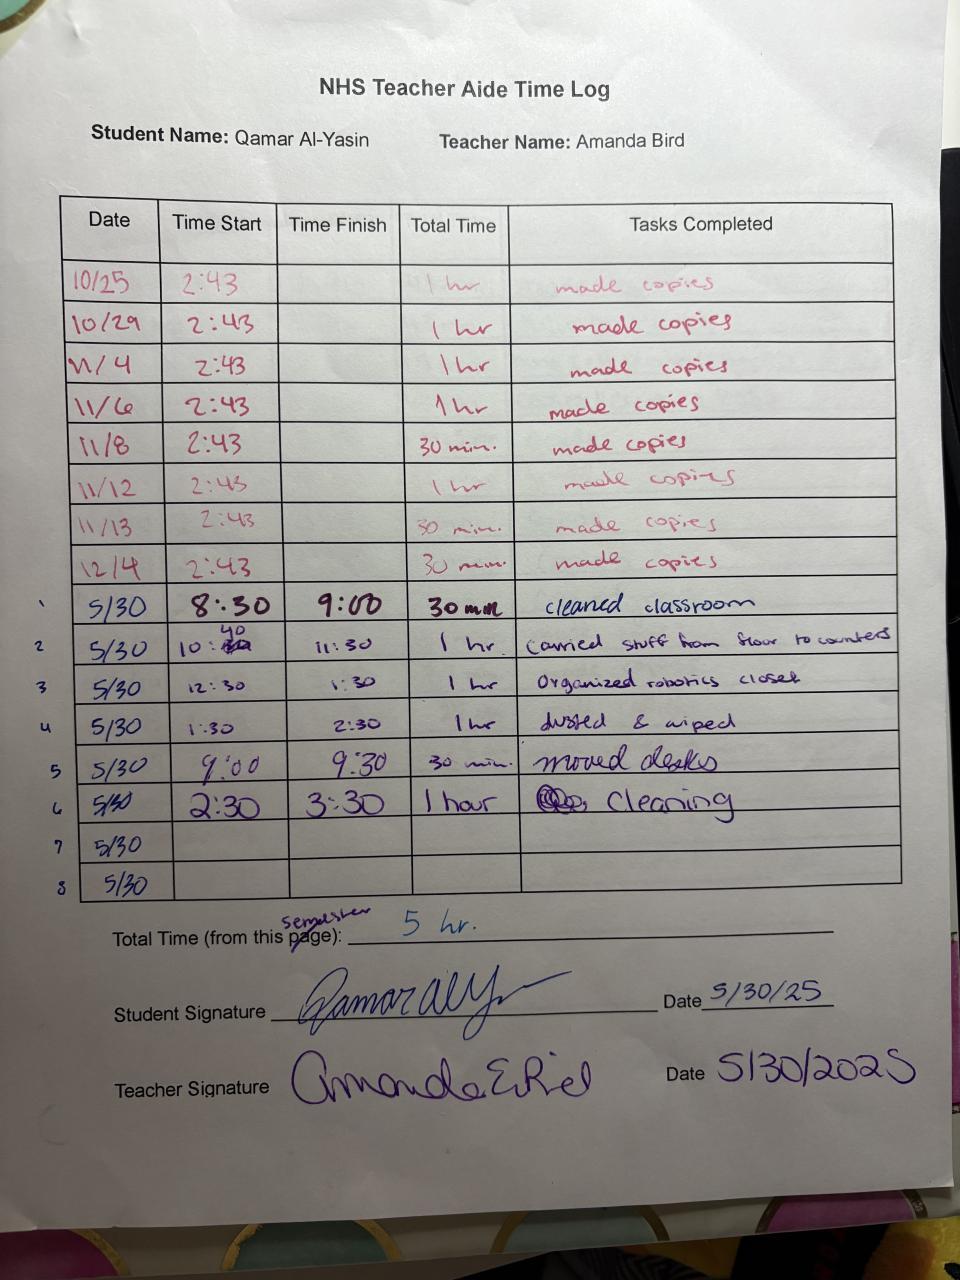 NHS Teacher Aide Time Log
Student Name: Qamar Al-Yasin Teacher Name: Amanda Bird
Date Time Start Time Finish Total Time Tasks Completed
10/25 2:43 1 hr made copies
10/29 2:43 1 hr made copies
11/4 2:43 1 hr made copies
11/6 2:43 1 hr made copies
11/8 2:43 30 min. made copies
11/12 2:43 1 hr made copies
11/13 2:43 30 min. made copies
12/4 2:43 30 min. made copies
1 5/30 8:30 9:00 30 min cleaned classroom
2 5/30 10:40 11:30 1 hr. Carried stuff from floor to counters
3 5/30 12:30 1:30 1 hr Organized robotics closet
4 5/30 1:30 2:30 1 hr dusted & wiped
5 5/30 9:00 9:30 30 min. moved desks
6 5/30 2:30 3:30 1 hour Cleaning
7 5/30
8 5/30
semester
Total Time (from this page): 5 hr.
Student Signature Date 5/30/25
Teacher Signature Date 5/30/2025